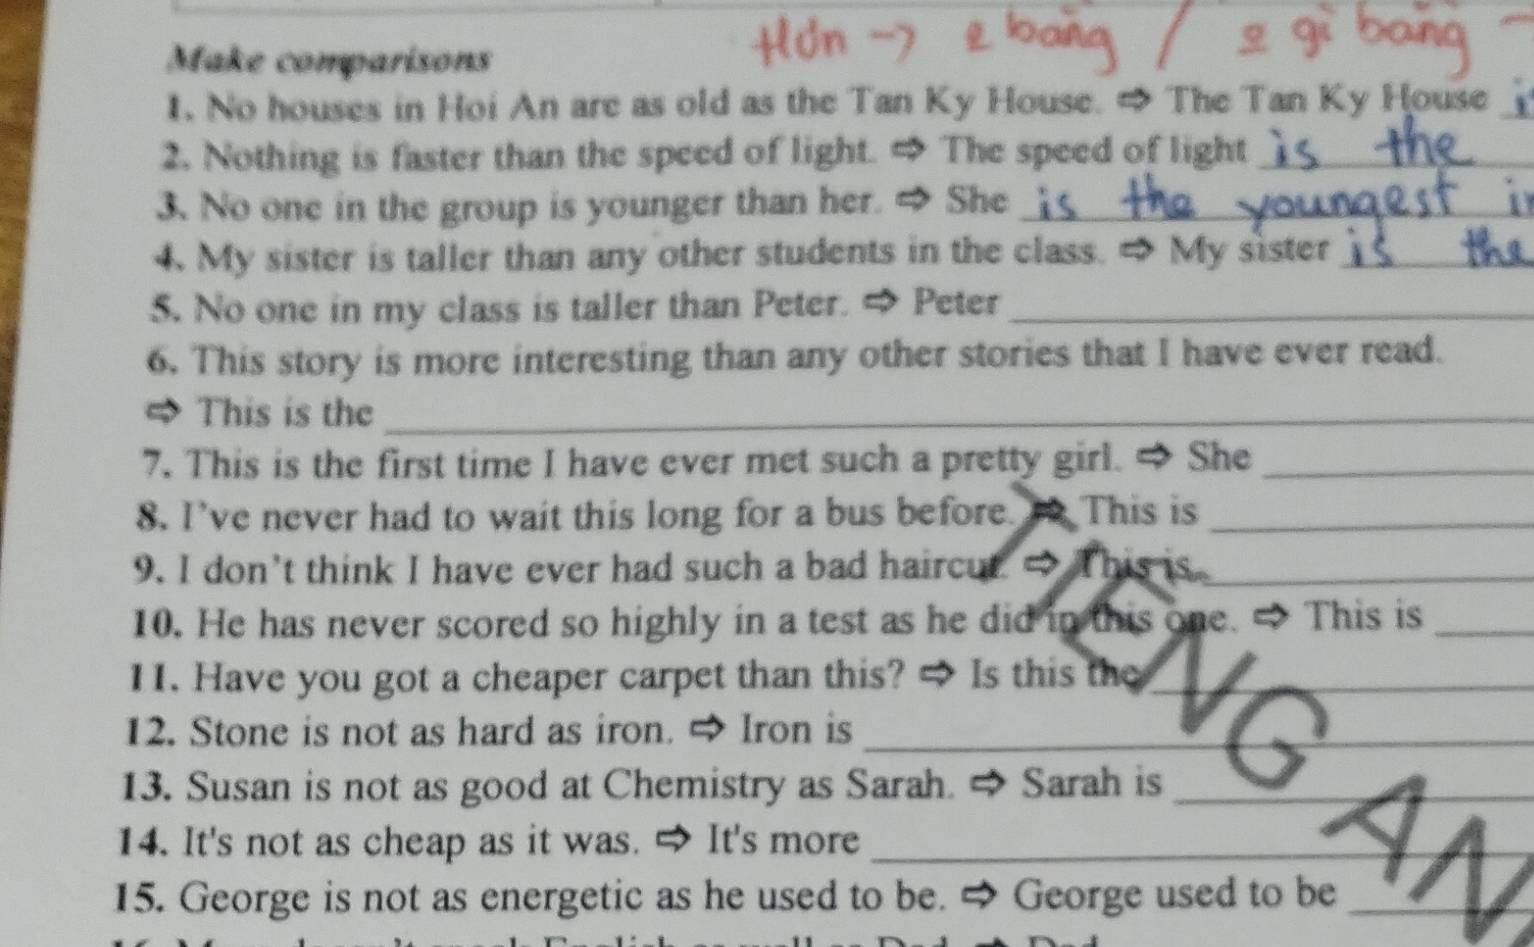 Hơn -> 2 bằng / 2 gì bằng -
Make comparisons
1. No houses in Hoi An are as old as the Tan Ky House. ⇨ The Tan Ky House
2. Nothing is faster than the speed of light. ⇨ The speed of light is the
3. No one in the group is younger than her. ⇨ She is the youngest
4. My sister is taller than any other students in the class. ⇨ My sister is the
5. No one in my class is taller than Peter. ⇨ Peter
6. This story is more interesting than any other stories that I have ever read.
⇨ This is the
7. This is the first time I have ever met such a pretty girl. ⇨ She
8. I've never had to wait this long for a bus before. ⇨ This is
9. I don't think I have ever had such a bad haircut. ⇨ This is
10. He has never scored so highly in a test as he did in this one. ⇨ This is
11. Have you got a cheaper carpet than this? ⇨ Is this the
12. Stone is not as hard as iron. ⇨ Iron is
13. Susan is not as good at Chemistry as Sarah. ⇨ Sarah is
14. It's not as cheap as it was. ⇨ It's more
15. George is not as energetic as he used to be. ⇨ George used to be
TIENG AN